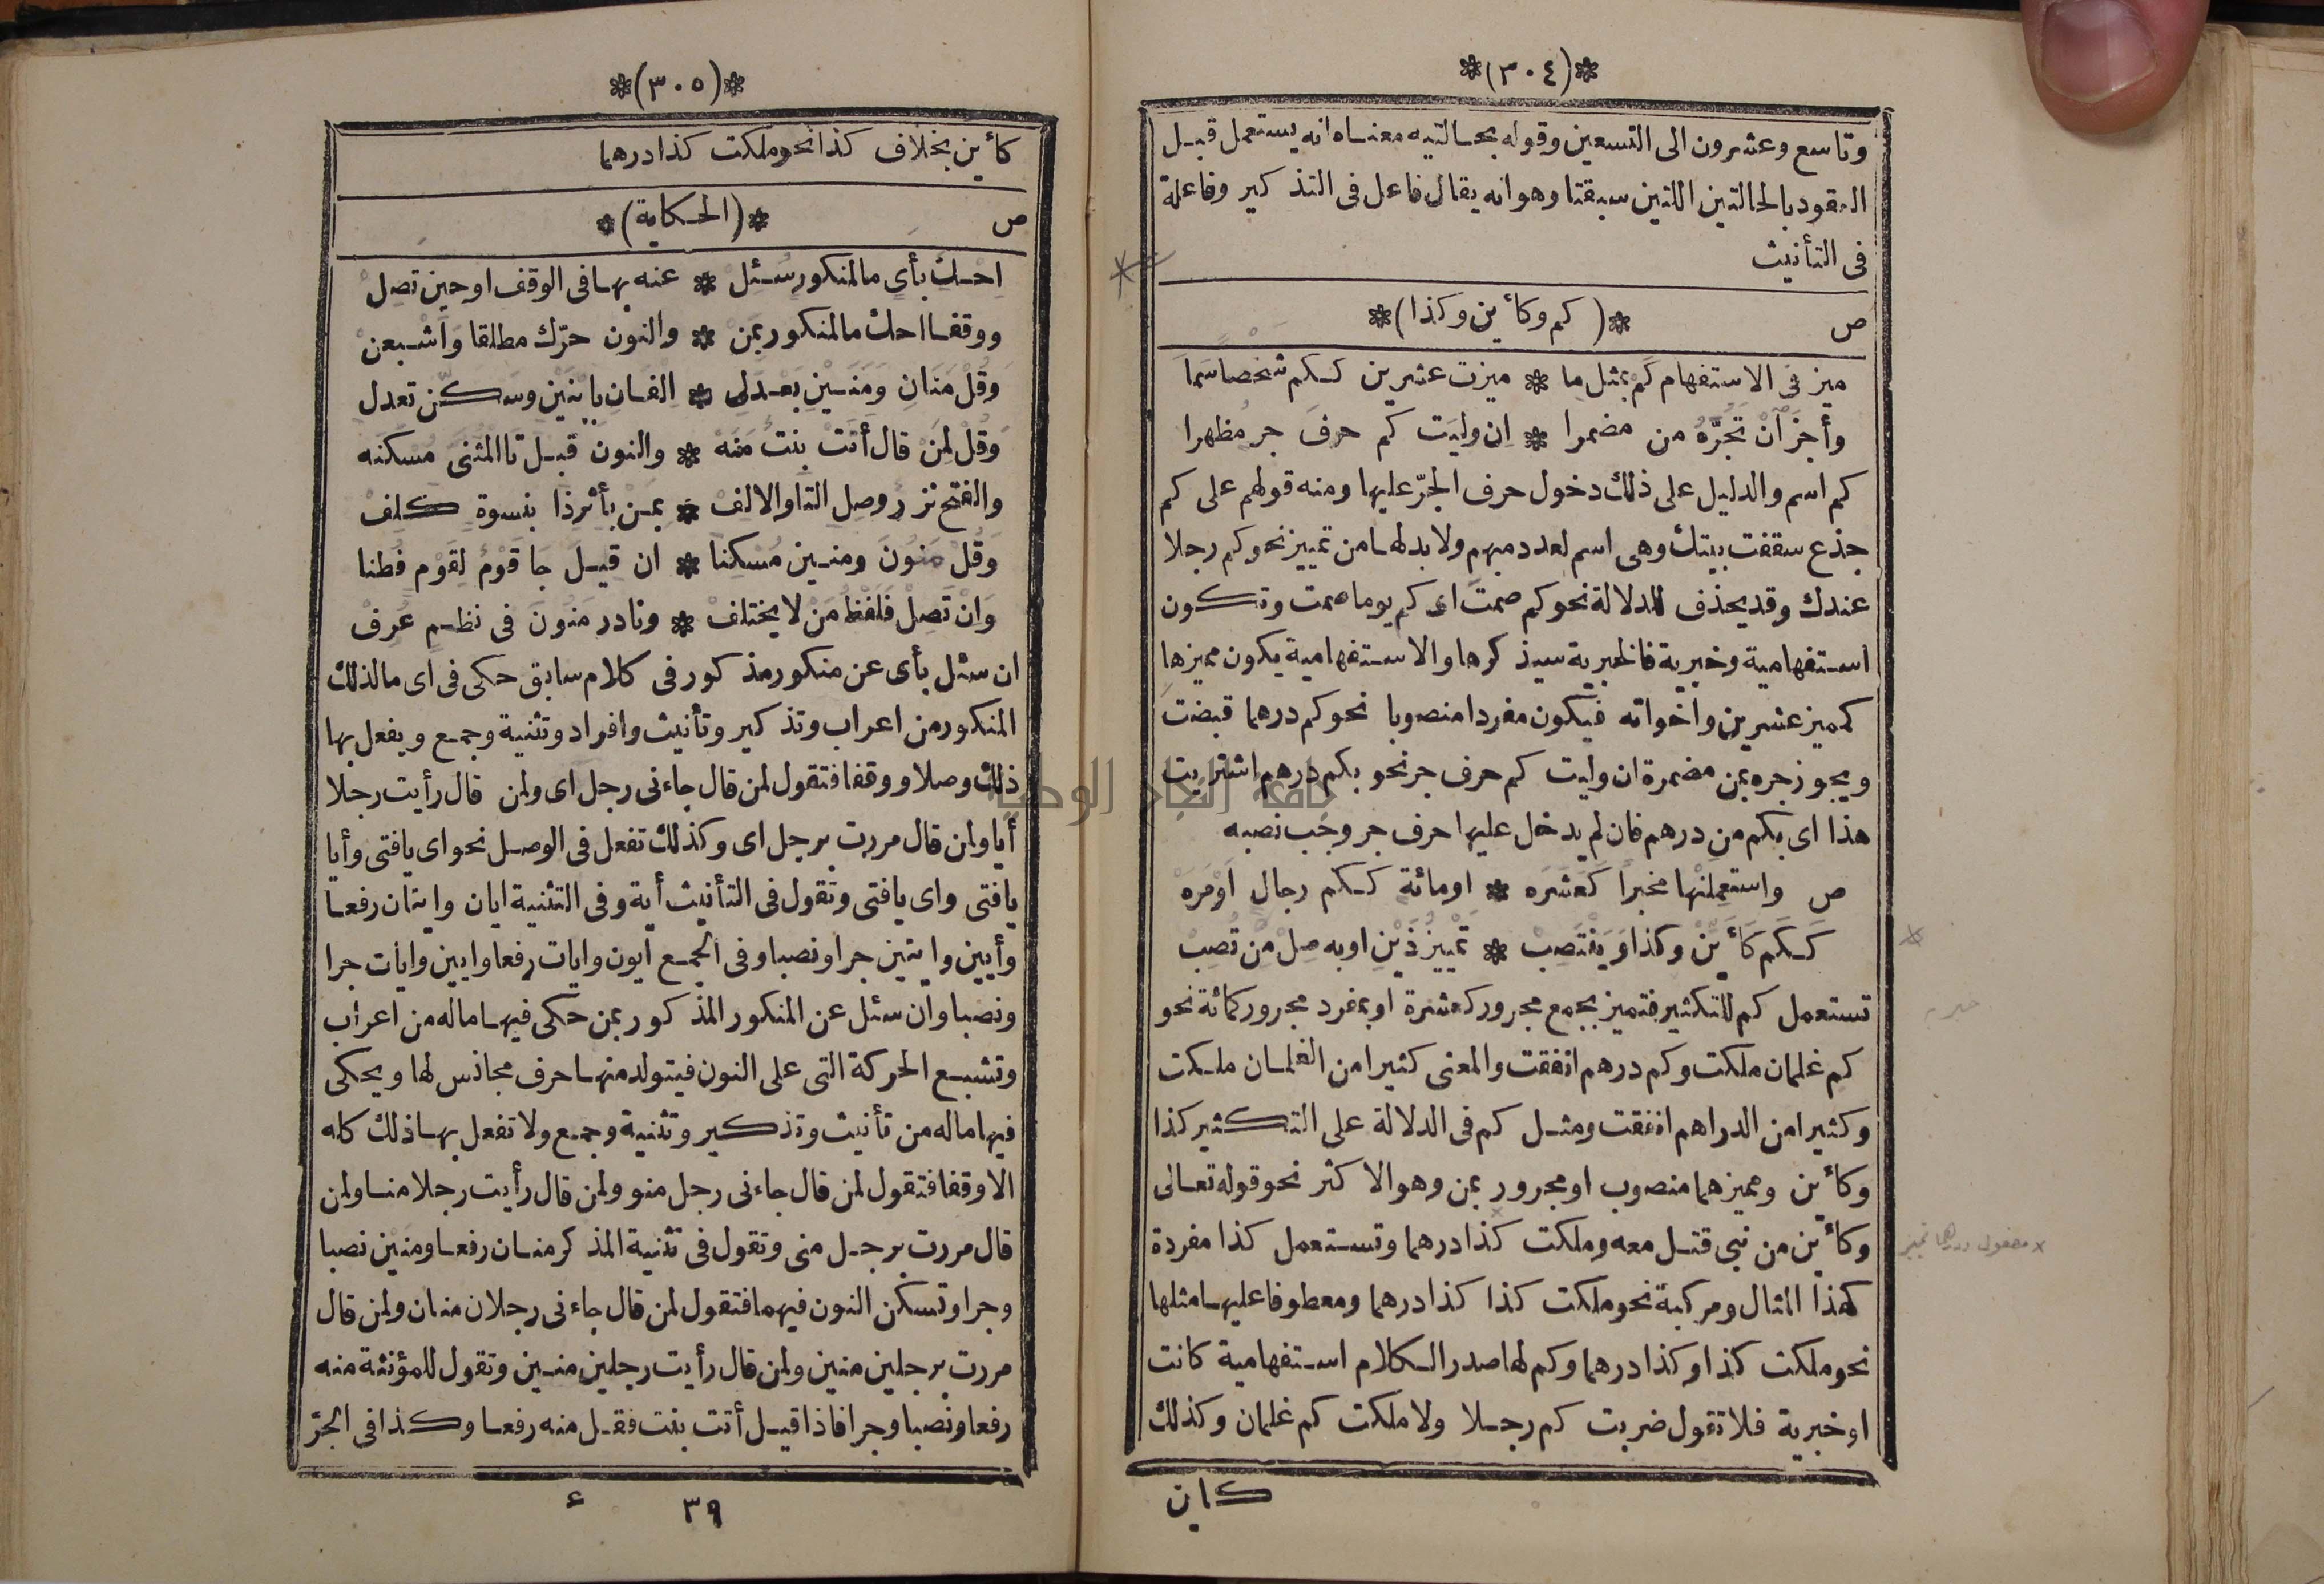 *(٣٠٤)*
وتاسع وعشرون الى التسعين وقوله بحالتيه معناه انه يستعمل قبل
العقود بالحالتين اللتين سبقتا وهو انه يقال فاعل فى التذكير وفاعلة
فى التأنيث
ص *(كم وكأين وكذا)*
ميز فى الاستفهام كَمْ بمثل ما * ميزت عشرين ككم شَخْصًا سَمَا
وأجِزَ آنْ تَجُرَّهُ من مضمرا * اِن وليَت كم حرفَ جر مُظهرا
كم اسم والدليل على ذلك دخول حرف الجرّ عليها ومنه قولهم على كم
جذع سقفت بيتك وهى اسم لعدد مبهم ولا بد لها من تمييز نحو كم رجلا
عندك وقد يحذف للدلالة نحو كم صمت اى كم يوما صمت وتكون
استفهامية وخبرية فالخبرية سيذكرها والاستفهامية يكون مميزها
كمميز عشرين واخواته فيكون مفردا منصوبا نحو كم درهما قبضت
ويجوز جره بمن مضمرة ان وليت كم حرف جر نحو بكم درهم اشتريت
هذا اى بكم من درهم فان لم يدخل عليها حرف جر وجب نصبه
ص واستعمِلنْها مخبرًا كَعَشَرَه * او مائة ككم رجال اَوْ مَرَهْ
كَكَم كَأَيِّنْ وكذا وَيَنْتَصِبْ * تَمْيِيزُ ذَيْنِ او به صِلْ مِن تُصِبْ
تستعمل كم للتكثير فتميز بجمع مجرور كعشرة او بمفرد مجرور كمائة نحو
كم غلمان ملكت وكم درهم انفقت والمعنى كثيرا من الغلمان ملكت
وكثيرا من الدراهم انفقت ومثل كم فى الدلالة على التكثير كذا
وكأين ومميزهما منصوب او مجرور بمن وهو الاكثر نحو قوله تعالى
وكأين من نبى قتل معه وملكت كذا درهما وتستعمل كذا مفردة
كهذا المثال ومركبة نحو ملكت كذا كذا درهما ومعطوفا عليها مثلها
نحو ملكت كذا وكذا درهما وكم لها صدر الكلام استفهامية كانت
او خبرية فلا تقول ضربت كم رجلا ولا ملكت كم غلمان وكذلك
كاين
*(٣٠٥)*
كأين بخلاف كذا نحو ملكت كذا درهما
ص *(الحكاية)*
اِحْكِ بأَىٍ ما لمنكور سُئِلْ * عنه بها فى الوقف او حين تَصِلْ
ووقفا احك ما لمنكور بمَنْ * والنون حرّك مطلقا وَاَشْبعنْ
وَقُلْ مَنَانِ وَمَنَيْنِ بَعْدَ لى * اِلفان بابْنَيْن وَسكّن تعدل
وَقُلْ لمَنْ قال أتَتْ بِنتٌ مَنَهْ * والنون قبل تا المُثنَّى مُسْكَنَه
والفتح نزر وصِل التا والالفْ * بمَنْ بأثر ذا بنسوة كلِفْ
وَقُلْ مَنُونَ ومنين مُسْكِنًا * ان قيل جَا قَوْمٌ لِقَوْمٍ فُطنا
وَانْ تَصِلْ فلفظُ مَنْ لا يختلفْ * ونادر مَنُونَ فى نظمٍ عُرِفْ
ان سئل بأى عن منكور مذكور فى كلام سابق حكى فى اى ما لذلك
المنكور من اعراب وتذكير وتأنيث وافراد وتثنية وجمع ويفعل بها
ذلك وصلا ووقفا فتقول لمن قال جاءنى رجل اى ولمن قال رأيت رجلا
أيا ولمن قال مررت برجل اى وكذلك تفعل فى الوصل نحو اى يافتى وأيا
يافتى واى يافتى وتقول فى التأنيث أية وفى التثنية ايان وايتان رفعا
وأيين وايتين جرا ونصبا وفى الجمع ايون وايات رفعا وايين وايات جرا
ونصبا وان سئل عن المنكور المذكور بمن حكى فيها ما له من اعراب
وتشبع الحركة التى على النون فيتولد منها حرف مجانس لها ويحكى
فيها ما له من تأنيث وتذكير وتثنية وجمع ولا تفعل بها ذلك كله
الا وقفا فتقول لمن قال جاءنى رجل منو ولمن قال رأيت رجلا منا ولمن
قال مررت برجل منى وتقول فى تثنية المذكر منان رفعا ومنين نصبا
وجرا وتسكن النون فيهما فتقول لمن قال جاءنى رجلان منان ولمن قال
مررت برجلين منين ولمن قال رأيت رجلين منين وتقول للمؤنثة منه
رفعا ونصبا وجرا فاذا قيل أتت بنت فقل منه رفعا وكذا فى الجرّ
٣٩ ء
جامعة النجاح الوطنية